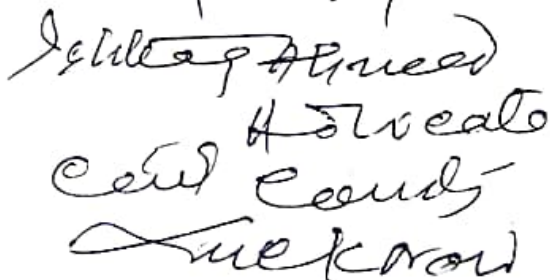 Ishtiaq Ahmeed
Advocate
Civil Courts
Lucknow